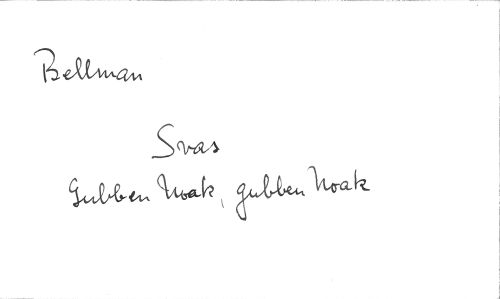 Bellman
Svas
Gubben Noak, gubben Noak